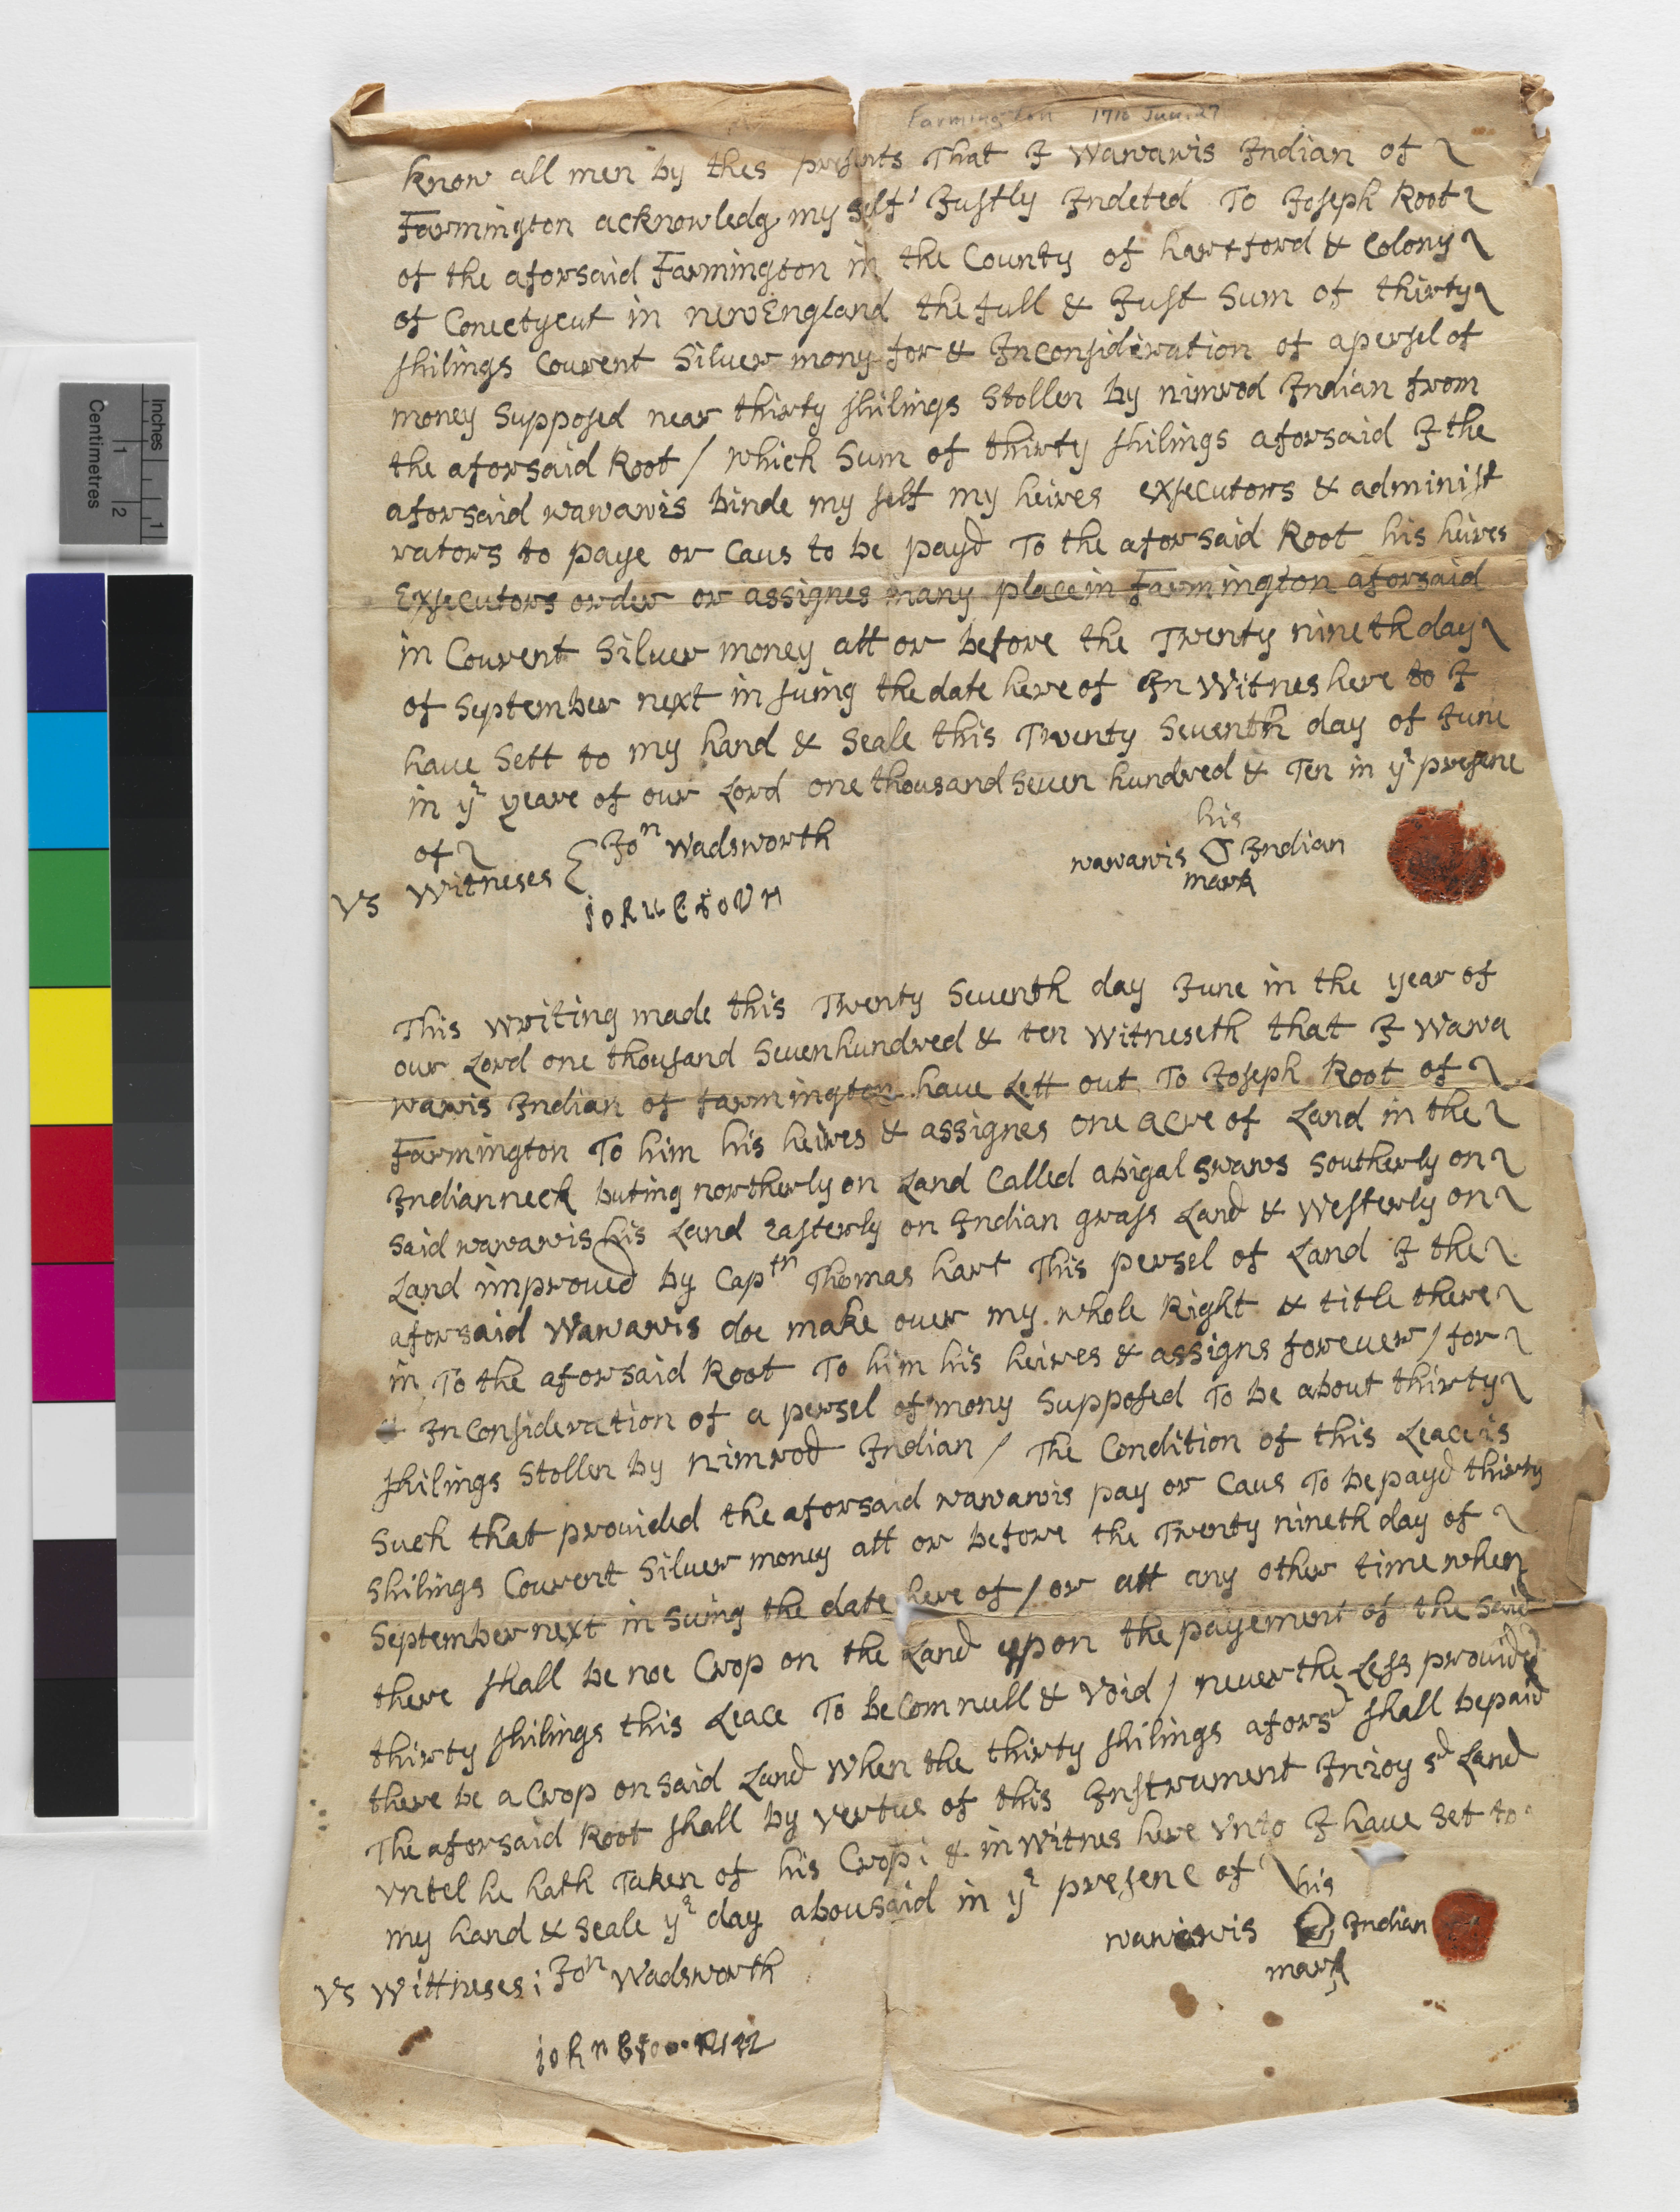 Farmington 1710 Jun. 27
know all men by thes presents That I Wawawis Indian of
Farmington acknowledg my self Justly Indeted To Joseph Root
of the aforsaid Farmington in the County of hartford & Colony
of Conectycut in newEngland the full & Just Sum of thirty
shilings Courent Silver mony for & In Consideration of a persel of
money Supposed near thirty shilings Stollen by nimrod Indian from
the aforsaid Root / which Sum of thirty shilings aforsaid I the
aforsaid wawawis binde my self my heires exsecutors & administ
rators to paye or Caus to be payd To the aforsaid Root his heires
Exsecutors order or assignes in any place in Farmington aforsaid
in Courent Silver money att or before the Twenty nineth day
of September next in suing the date here of In Witnes here to I
have Sett to my hand & Seale this Twenty Seventh day of June
in yͤ yeare of our Lord one thousand Seven hundred & Ten in yͤ presene
of
his
Vs Witneses { Joⁿ Wadsworth
wawawis Indian
mark
This writing made this Twenty Seventh day June in the year of
our Lord one thousand Seven hundred & ten Witneseth that I Wawa
wawis Indian of farmington have Lett out To Joseph Root of
Farmington To him his heires & assignes one acre of Land in the
Indian neck buting northerly on Land Called abigal Swaws Southerly on
Said wawawis his Land Easterly on Indian grass Land & Westerly on
Land improved by Capᵗⁿ Thomas hart This persel of Land I the
aforsaid Wawawis doe make over my whole Right & title there
in To the aforsaid Root To him his heires & assigns forever / for
& In Consideration of a persel of mony Supposed To be about thirty
shilings Stollen by nimrod Indian / The Condition of this Leace is
Such that provided the aforsaid wawawis pay or Caus To be payd thirty
Shilings Courent Silver money att or before the Twenty nineth day of
September next in Suing the date here of / or att any other time when
there shall be noe Crop on the Land upon the payement of the Said
thirty shilings this Leace To be Com null & void / never the Less provided
there be a Crop on Said Land when the thirty shilings aforsᵈ shall be paid
The aforsaid Root shall by vertue of this Instrument Inioy sᵈ Land
Vntel he hath Taken of his Crop & in Witnes here Vnto I have Set to
my hand & Seale yͤ day abousaid in yͤ presene of
his
wawawis Indian
mark
Vs Wittneses Joⁿ Wadsworth
Inches
Centimetres
1
2
1